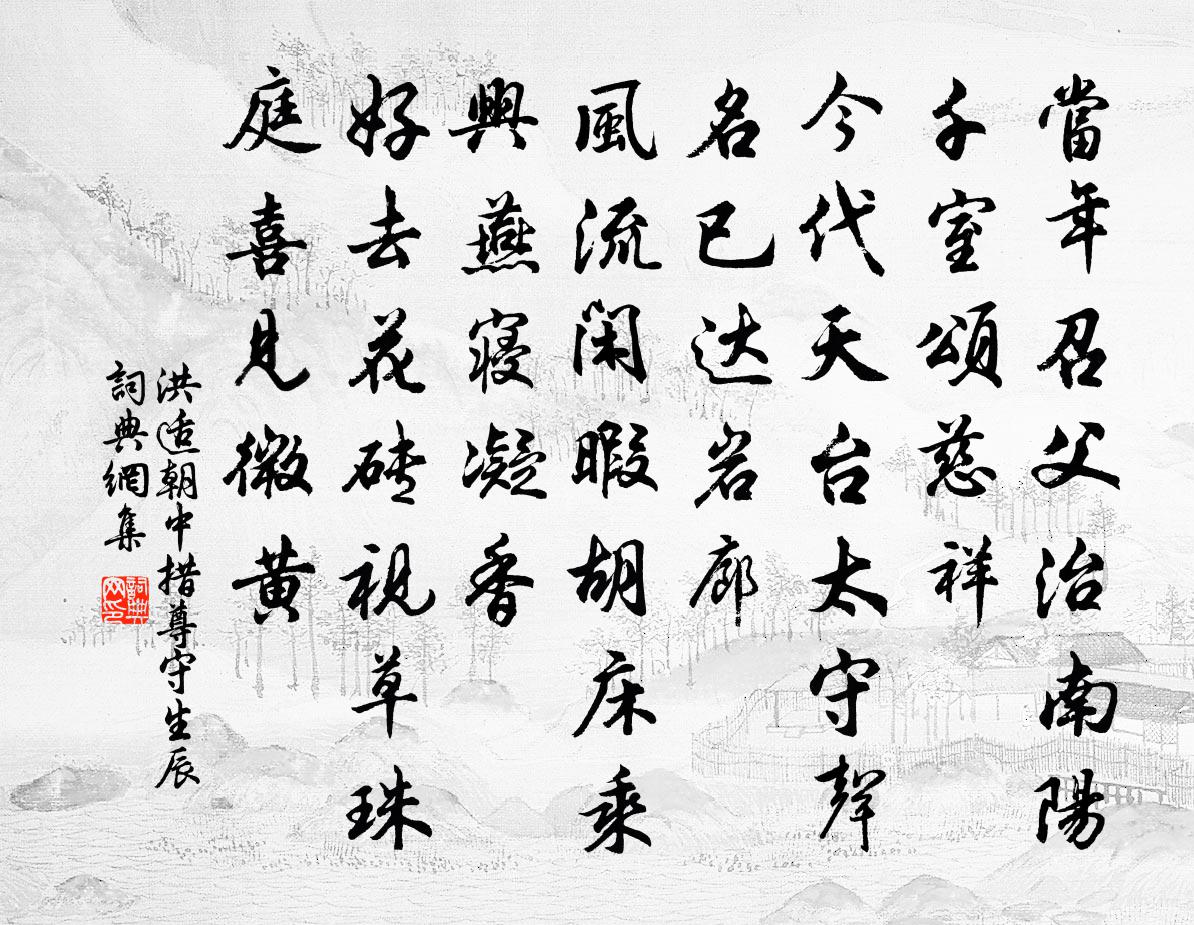 當年召父治南陽
千室頌慈祥
今代天台太守聲
名已达岩廊
風流閑暇胡床乘
興燕寢凝香
好去花磚視草珠
庭喜見微黃
洪适朝中措尊守生辰
詞典網集
詞典网印